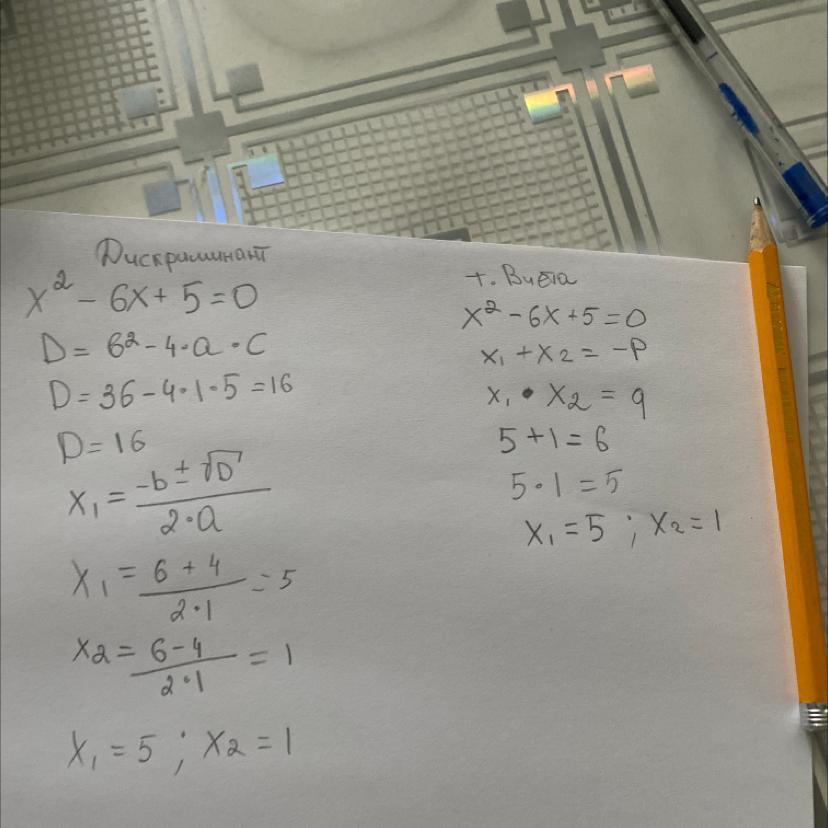 Дискриминант
x² - 6x + 5 = 0
D = 6² - 4·a·c
D = 36 - 4·1·5 = 16
D = 16
x₁ = (-b ± √D) / (2·a)
x₁ = (6 + 4) / (2·1) = 5
x₂ = (6 - 4) / (2·1) = 1
x₁ = 5 ; x₂ = 1
т. Виета
x² - 6x + 5 = 0
x₁ + x₂ = -p
x₁ · x₂ = q
5 + 1 = 6
5 · 1 = 5
x₁ = 5 ; x₂ = 1